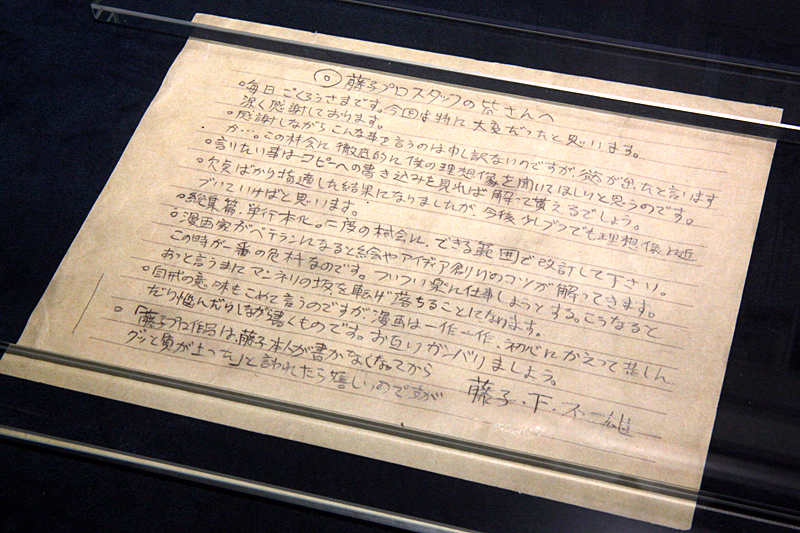 ◎藤子プロスタッフの皆さんへ
○毎日ごくろうさまです。今回は特に大変だったと思います。
深く感謝しております。
○感謝しながらこんな事を言うのは申し訳ないのですが、慾が出たと言います
か…。この机会に徹底的に僕の理想像を聞いてほしいと思うのです。
○言りたい事はコピーへの書き込みを見れば解って貰えるでしょう。
○欠点ばかり指適した結果になりましたが、今後少しづつでも理想像に近
づいていければと思います。
○総集篇、単行本化。二度の机会に、できる範囲で改訂して下さい。
○漫画家がベテランになると絵やアイデア創りのコツが解ってきます。
この時が一番の危机なのです。ついつい楽に仕事しようとする。こうなると
あっと言うまにマンネリの坂を転げ落ちることになります。
○自戒の意味もこめて言うのですが漫画は一作一作、初心にかえって苦しん
だり悩んだりしながら書くものです。お互いガンバリましょう。
○「藤子プロ作品は、藤子本人が書かなくなってから
グッと質が上った」と言われたら嬉しいのですが
藤子・F・不二雄